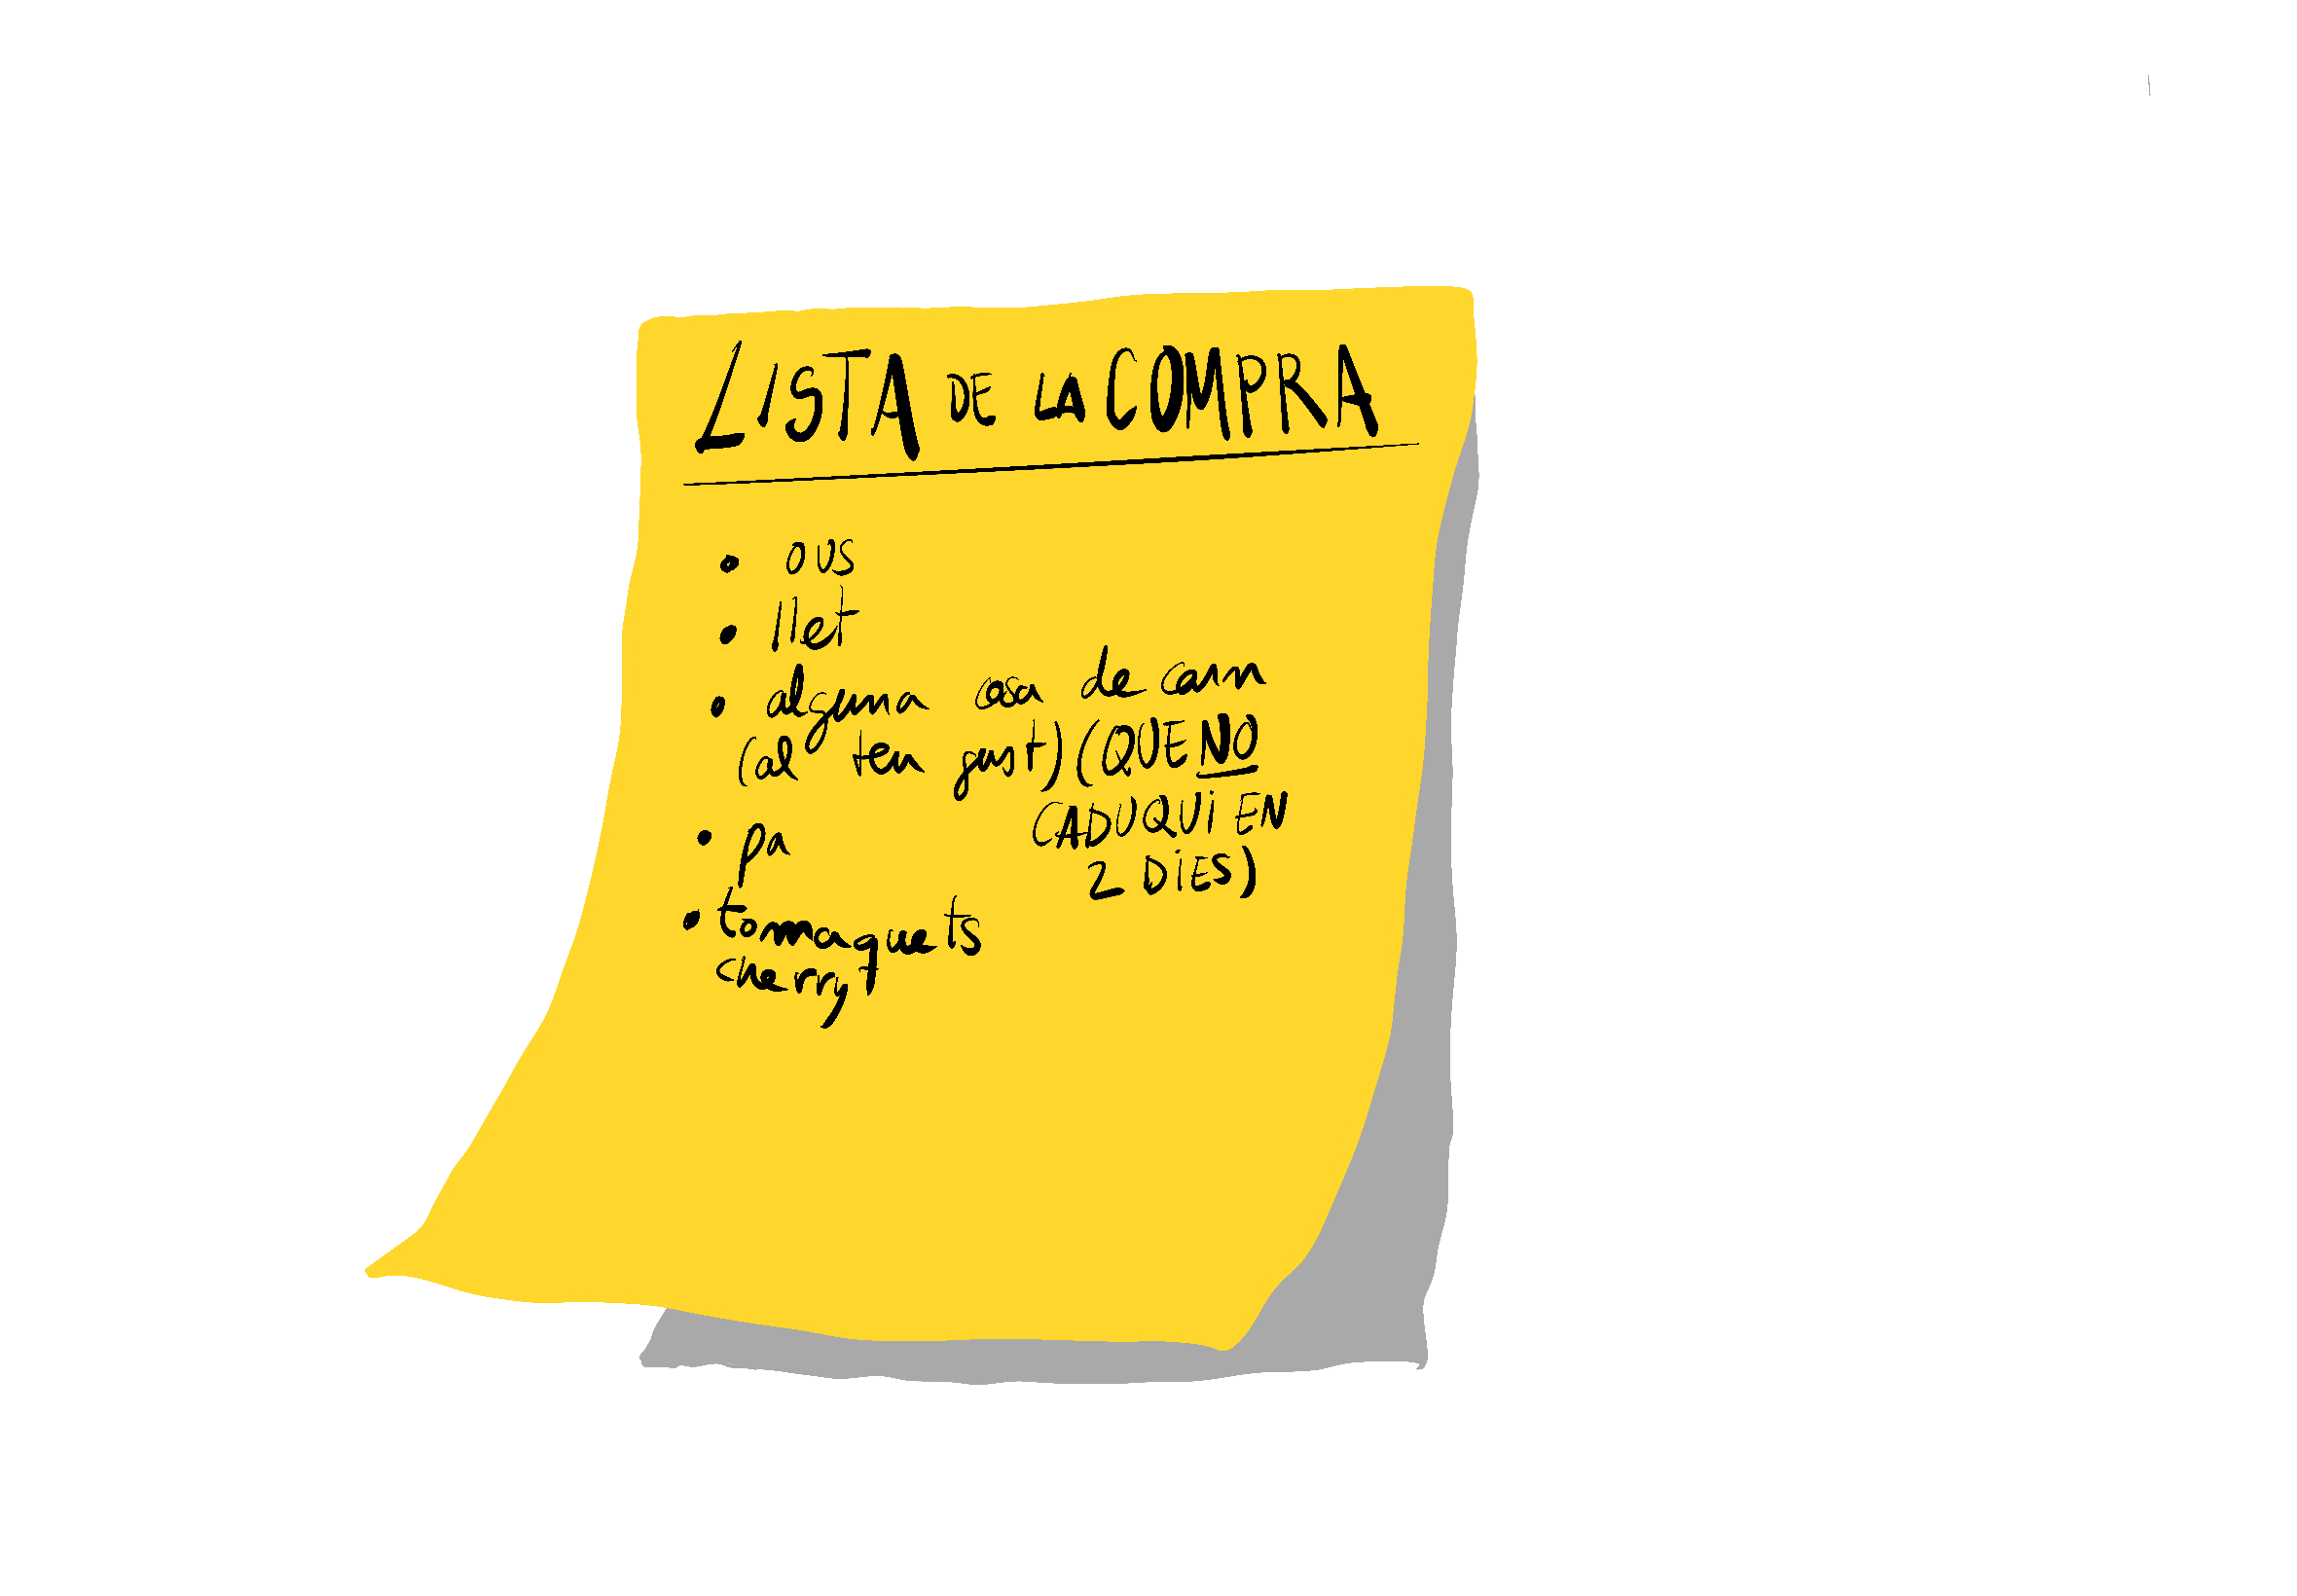 LISTA DE LA COMPRA
• ous
• llet
• alguna cosa de carn
(al teu gust) (QUE NO
CADUQUi EN
2 DiES)
• pa
• tomaquets
cherry